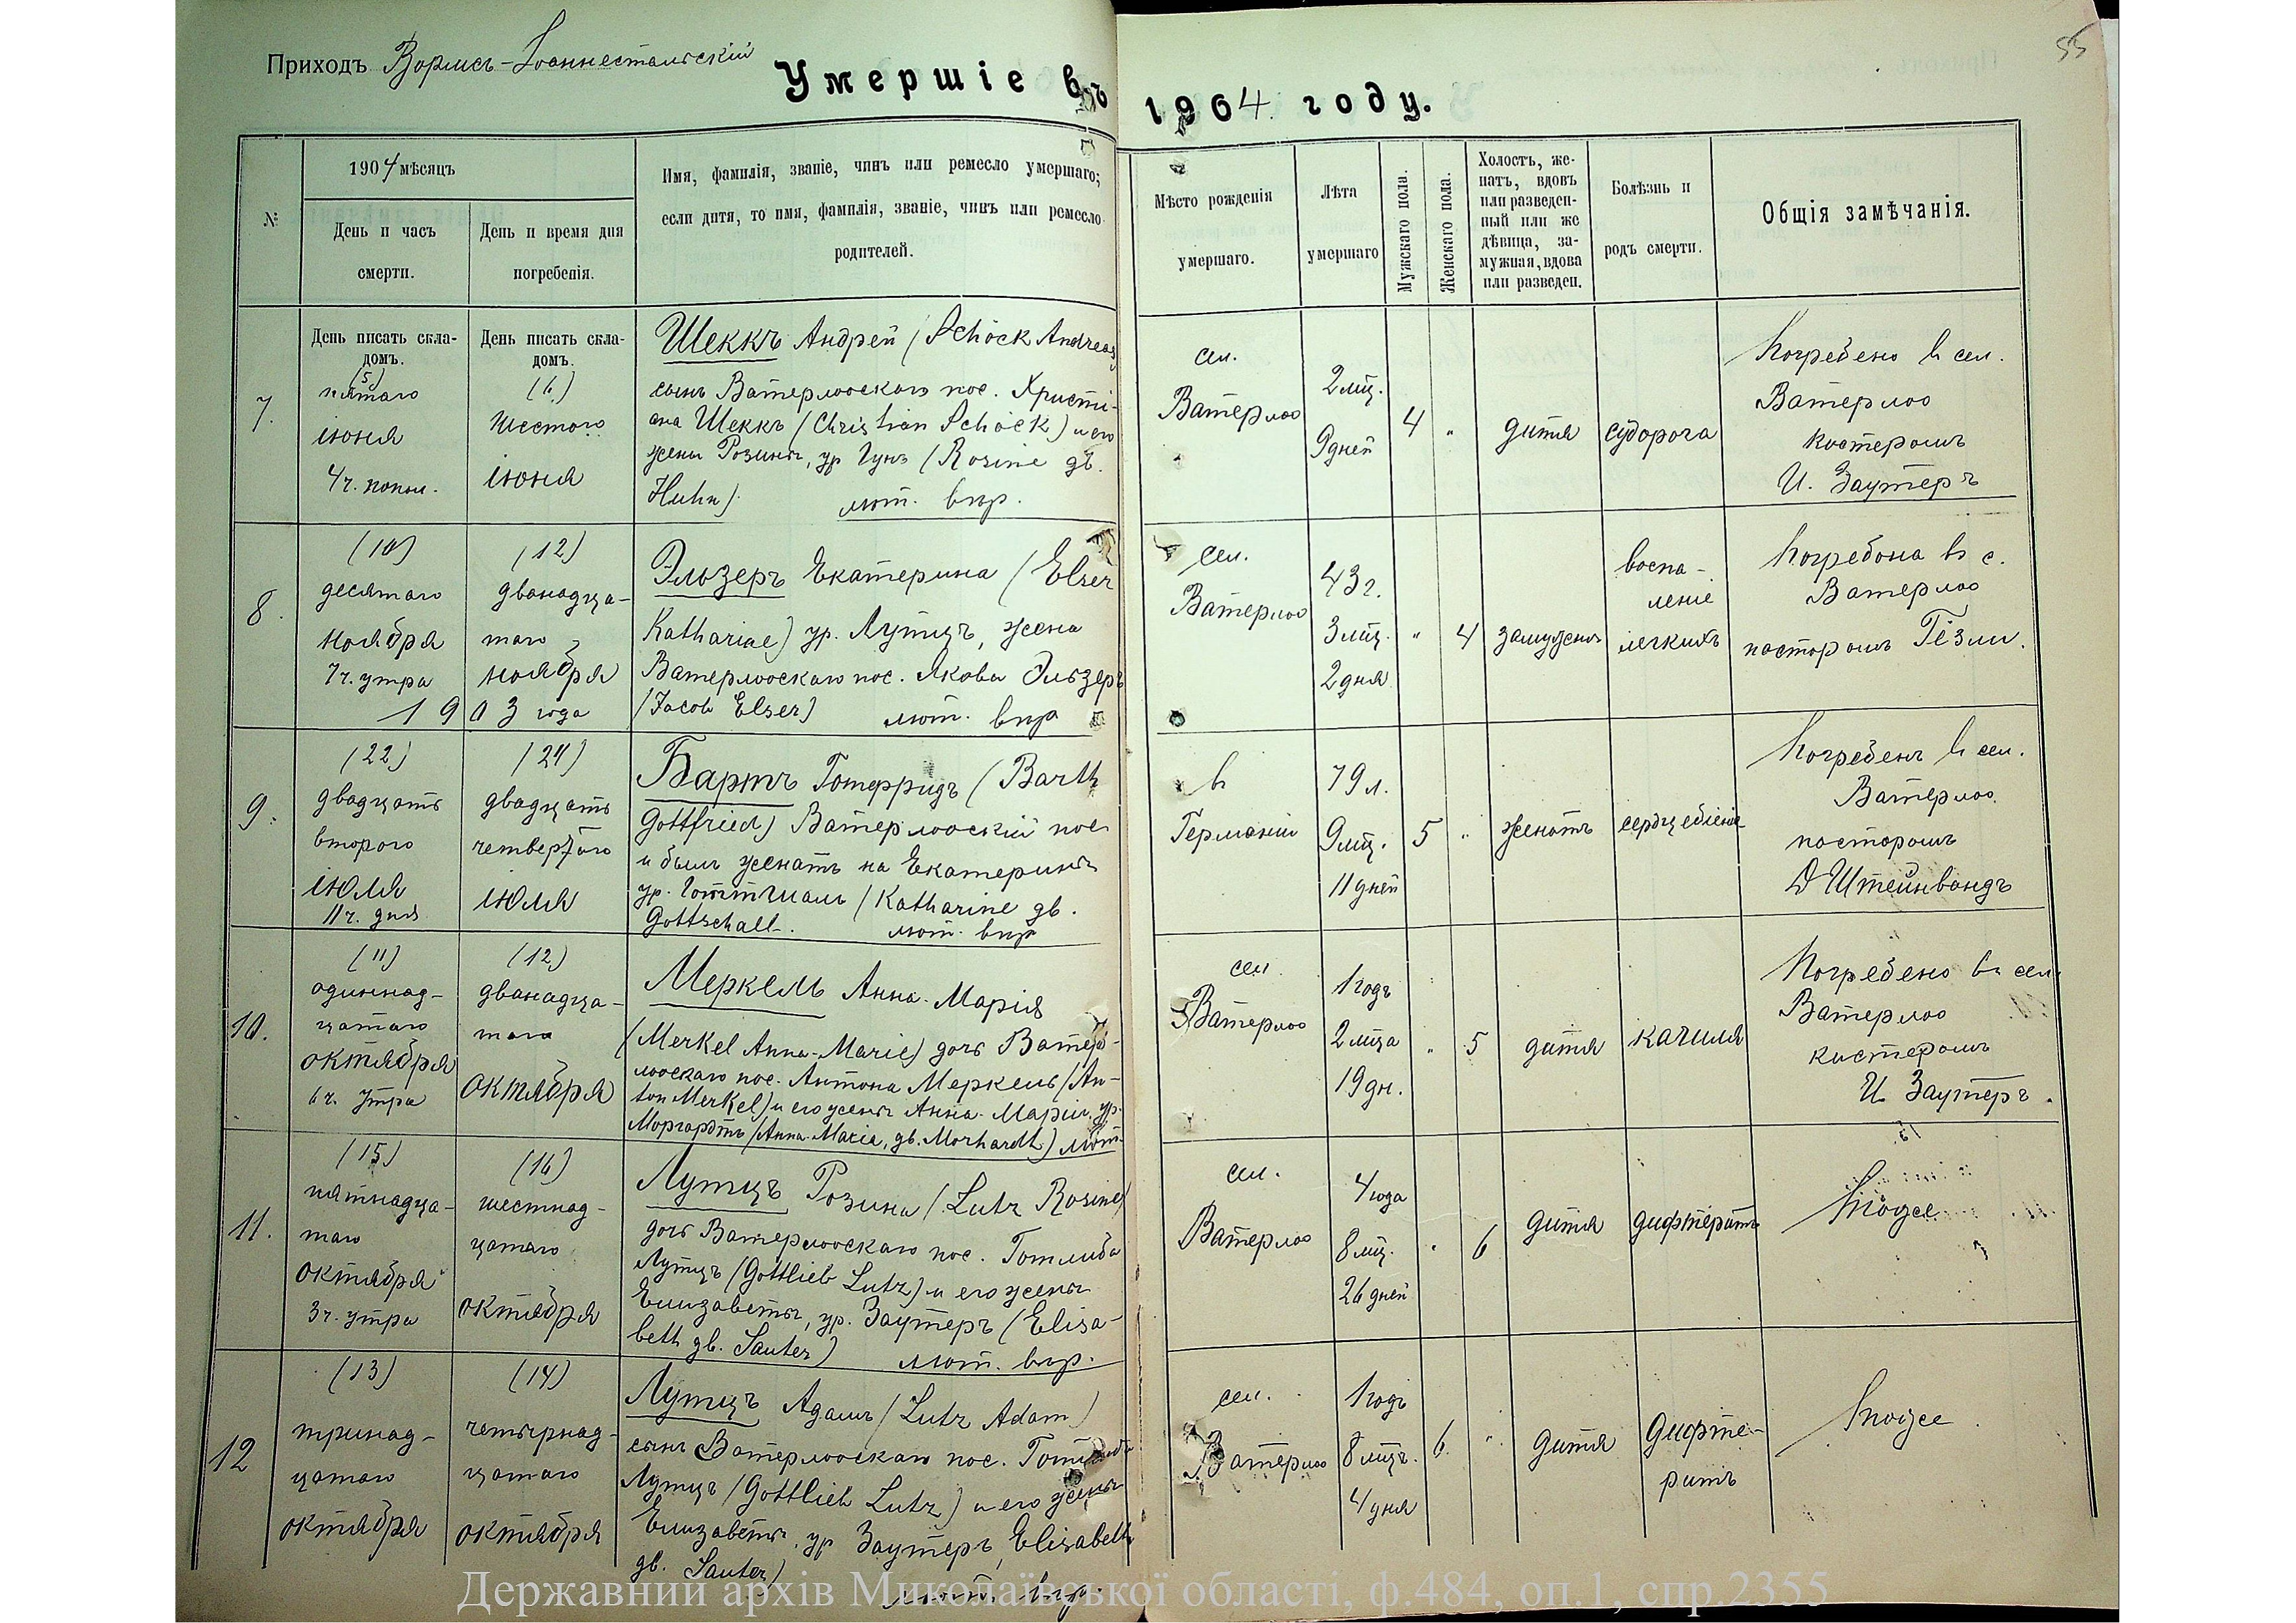 Приходъ Вормсъ-Іоаннестальскій
55
Умершіе въ 1904 году.
№
1904 мѣсяцъ
День и часъ
смерти.
День и время дня
погребенія.
Имя, фамилія, званіе, чинъ или ремесло умершаго;
если дитя, то имя, фамилія, званіе, чинъ или ремесло
родителей.
Мѣсто рожденія
умершаго.
Лѣта
умершаго
Мужскаго пола.
Женскаго пола.
Холостъ, же-
натъ, вдовъ
или разведен-
ный или же
дѣвица, за-
мужняя, вдова
или разведен.
Болѣзнь и
родъ смерти.
Общія замѣчанія.
7.
День писать скла-
домъ.
(5)
пятаго
іюня
4 ч. попол.
День писать скла-
домъ.
(6)
шестого
іюня
Шеккъ Андрей (Schöck Andreas
сынъ Ватерлооскаго пос. Христі-
ана Шеккъ (Christian Schöck) и его
жены Розины, ур Гунъ (Rosine gb.
Huhn) лют. впр.
сел.
Ватерлоо
2 мѣц.
9 дней
4
"
дитя
судорога
Погребено в сел.
Ватерлоо
кюстеромъ
И. Заутеръ
8.
(10)
десятаго
ноября
7 ч. утра
(12)
двѣнадца-
таго
ноября
1903 года
Эльзеръ Екатерина (Elser
Katharine) ур. Лутцъ, жена
Ватерлооскаго пос. Якова Эльзеръ
(Jacob Elser) лют. впр
сел.
Ватерлоо
43 г.
3 мѣц.
2 дня
"
4
замужемъ
воспа-
леніе
легкихъ
Погребена въ с.
Ватерлоо
пасторомъ Гёзли.
9.
(22)
двадцать
второго
іюля
11 ч. дня
(24)
двадцать
четвертаго
іюля
Бартъ Готфридъ (Barth
Gottfried) Ватерлооскій пос
и былъ женатъ на Екатеринѣ
ур. Готтшалъ (Katharine gb.
Gottschall. лют. впр
в
Германіи
79 л.
9 мѣц.
11 дней
5
"
женатъ
сердцебіеніе
Погребенъ в сел.
Ватерлоо
пасторомъ
Д Штейнвандъ
10.
(11)
одиннад-
цатаго
октября
6 ч. утра
(12)
двѣнадца-
таго
октября
Меркель Анна-Марія
(Merkel Anna-Marie) дочь Ватер-
лооскаго пос. Антона Меркель (An-
ton Merkel) и его жены Анна-Маріи, ур.
Моргардтъ (Anna-Maria, gb. Morhardt) лют.
сел.
Ватерлоо
1 годъ
2 мѣца
19 дн.
"
5
дитя
кашля
Погребено въ сел.
Ватерлоо
кистеромъ
И Заутеръ.
11.
(15)
пятнадца-
таго
октября
3 ч. утра
(16)
шестнад-
цатаго
октября
Лутцъ Розина (Lutz Rosine)
дочь Ватерлооскаго пос. Готлиба
Лутцъ (Gottlieb Lutz) и его жены
Елизаветы, ур. Заутеръ (Elisa-
beth gb. Sauter) лют. впр.
сел.
Ватерлоо
4 года
8 мѣц.
26 дней
"
6
дитя
дифтеритъ
тоже
12
(13)
тринад-
цатаго
октября
(14)
четырнад-
цатаго
октября
Лутцъ Адамъ (Lutz Adam)
сынъ Ватерлооскаго пос. Готлиба
Лутцъ (Gottlieb Lutz) и его жены
Елизаветы, ур Заутеръ, Elisabeth
gb. Sauter)
лют. впр.
сел.
Ватерлоо
1 годъ
8 мѣц.
4 дня
6.
"
дитя
дифте-
ритъ
тоже
Державний архів Миколаївської області, ф.484, оп.1, спр.2355